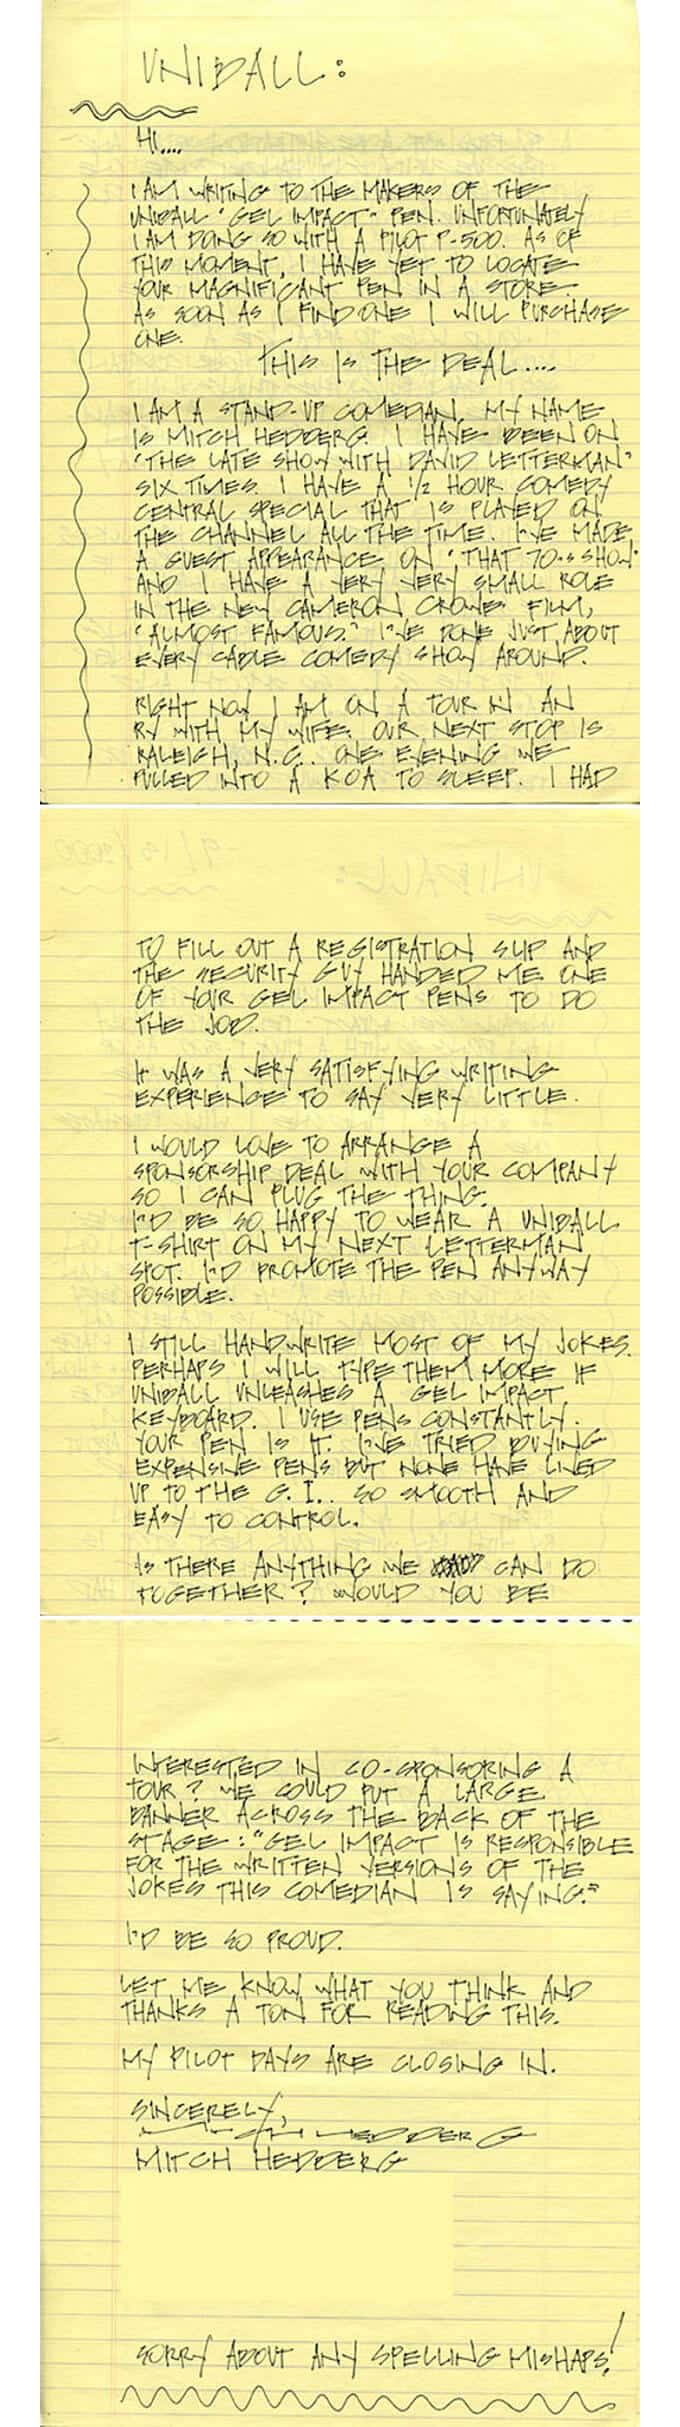 UNIBALL:
HI....
I AM WRITING TO THE MAKERS OF THE
UNIBALL "GEL IMPACT" PEN. UNFORTUNATELY
I AM DOING SO WITH A PILOT P-500. AS OF
THIS MOMENT, I HAVE YET TO LOCATE
YOUR MAGNIFICANT PEN IN A STORE.
AS SOON AS I FIND ONE I WILL PURCHASE
ONE.
THIS IS THE DEAL....
I AM A STAND-UP COMEDIAN. MY NAME
IS MITCH HEDBERG. I HAVE BEEN ON
"THE LATE SHOW WITH DAVID LETTERMAN"
SIX TIMES. I HAVE A 1/2 HOUR COMEDY
CENTRAL SPECIAL THAT IS PLAYED ON
THE CHANNEL ALL THE TIME. I'VE MADE
A GUEST APPEARANCE ON "THAT 70's SHOW"
AND I HAVE A VERY VERY SMALL ROLE
IN THE NEW CAMERON CROWE FILM,
"ALMOST FAMOUS." I'VE DONE JUST ABOUT
EVERY CABLE COMEDY SHOW AROUND.
RIGHT NOW I AM ON A TOUR IN AN
RV WITH MY WIFE. OUR NEXT STOP IS
RALEIGH, N.C.. ONE EVENING WE
PULLED INTO A KOA TO SLEEP. I HAD
9/13/2000
UNIBALL:
TO FILL OUT A REGISTRATION SLIP AND
THE SECURITY GUY HANDED ME ONE
OF YOUR GEL IMPACT PENS TO DO
THE JOB.
IT WAS A VERY SATISFYING WRITING
EXPERIENCE TO SAY VERY LITTLE.
I WOULD LOVE TO ARRANGE A
SPONSORSHIP DEAL WITH YOUR COMPANY
SO I CAN PLUG THE THING.
I'D BE SO HAPPY TO WEAR A UNIBALL
T-SHIRT ON MY NEXT LETTERMAN
SPOT. I'D PROMOTE THE PEN ANYWAY
POSSIBLE.
I STILL HANDWRITE MOST OF MY JOKES.
PERHAPS I WILL TYPE THEM MORE IF
UNIBALL UNLEASHES A GEL IMPACT
KEYBOARD. I USE PENS CONSTANTLY.
YOUR PEN IS IT. I'VE TRIED BUYING
EXPENSIVE PENS BUT NONE HAVE LIVED
UP TO THE G.I.. SO SMOOTH AND
EASY TO CONTROL.
IS THERE ANYTHING WE CAN DO
TOGETHER? WOULD YOU BE
INTERESTED IN CO-SPONSORING A
TOUR? WE COULD PUT A LARGE
BANNER ACROSS THE BACK OF THE
STAGE: "GEL IMPACT IS RESPONSIBLE
FOR THE WRITTEN VERSIONS OF THE
JOKES THIS COMEDIAN IS SAYING."
I'D BE SO PROUD.
LET ME KNOW WHAT YOU THINK AND
THANKS A TON FOR READING THIS.
MY PILOT DAYS ARE CLOSING IN.
SINCERELY,
MITCH HEDBERG
MITCH HEDBERG
SORRY ABOUT ANY SPELLING MISHAPS!